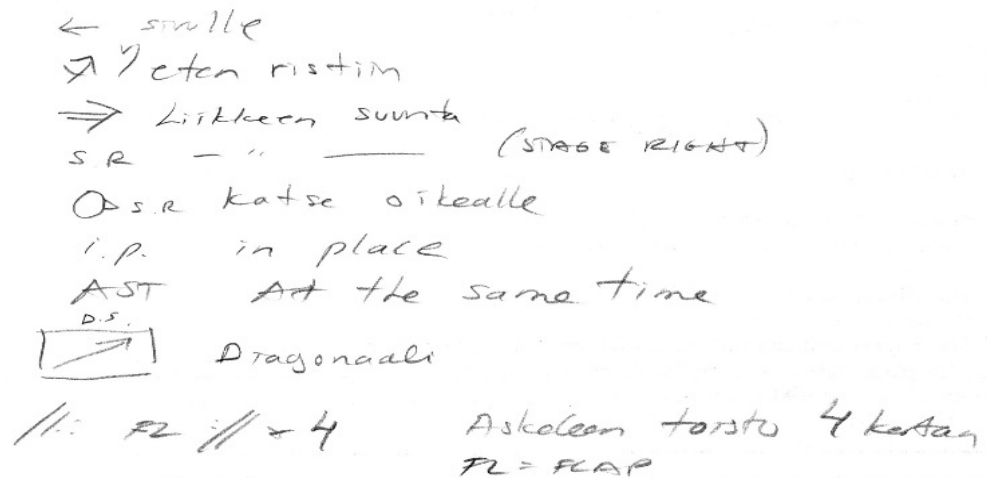 ← sivulle
↗ eteen ristiin
⇒ Liikkeen suunta
S.R — " — (STAGE RIGHT)
S.R katse oikealle
i.p. in place
AST At the same time
D.S.
Diagonaali
//: FL :// × 4 Askeleen toisto 4 kertaa
FL = FLAP